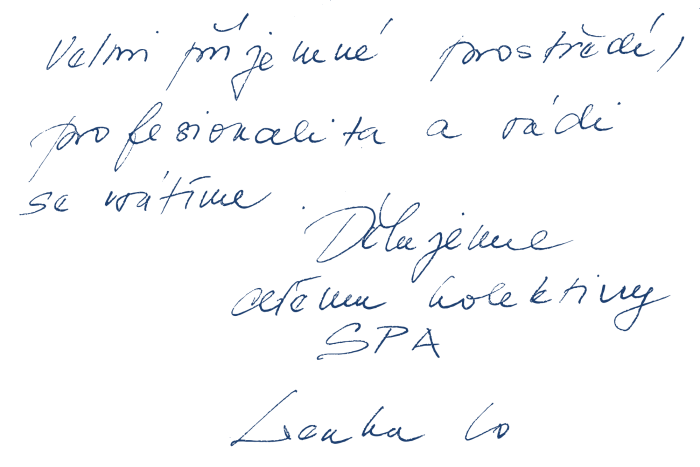 Velmi příjemné prostředí,
profesionalita a rádi
se vrátíme.
Děkujeme
celému kolektivu
SPA
Lenka